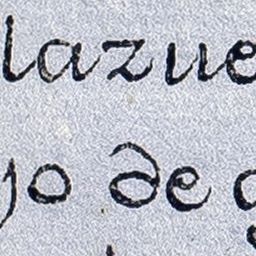 lazue
yo de